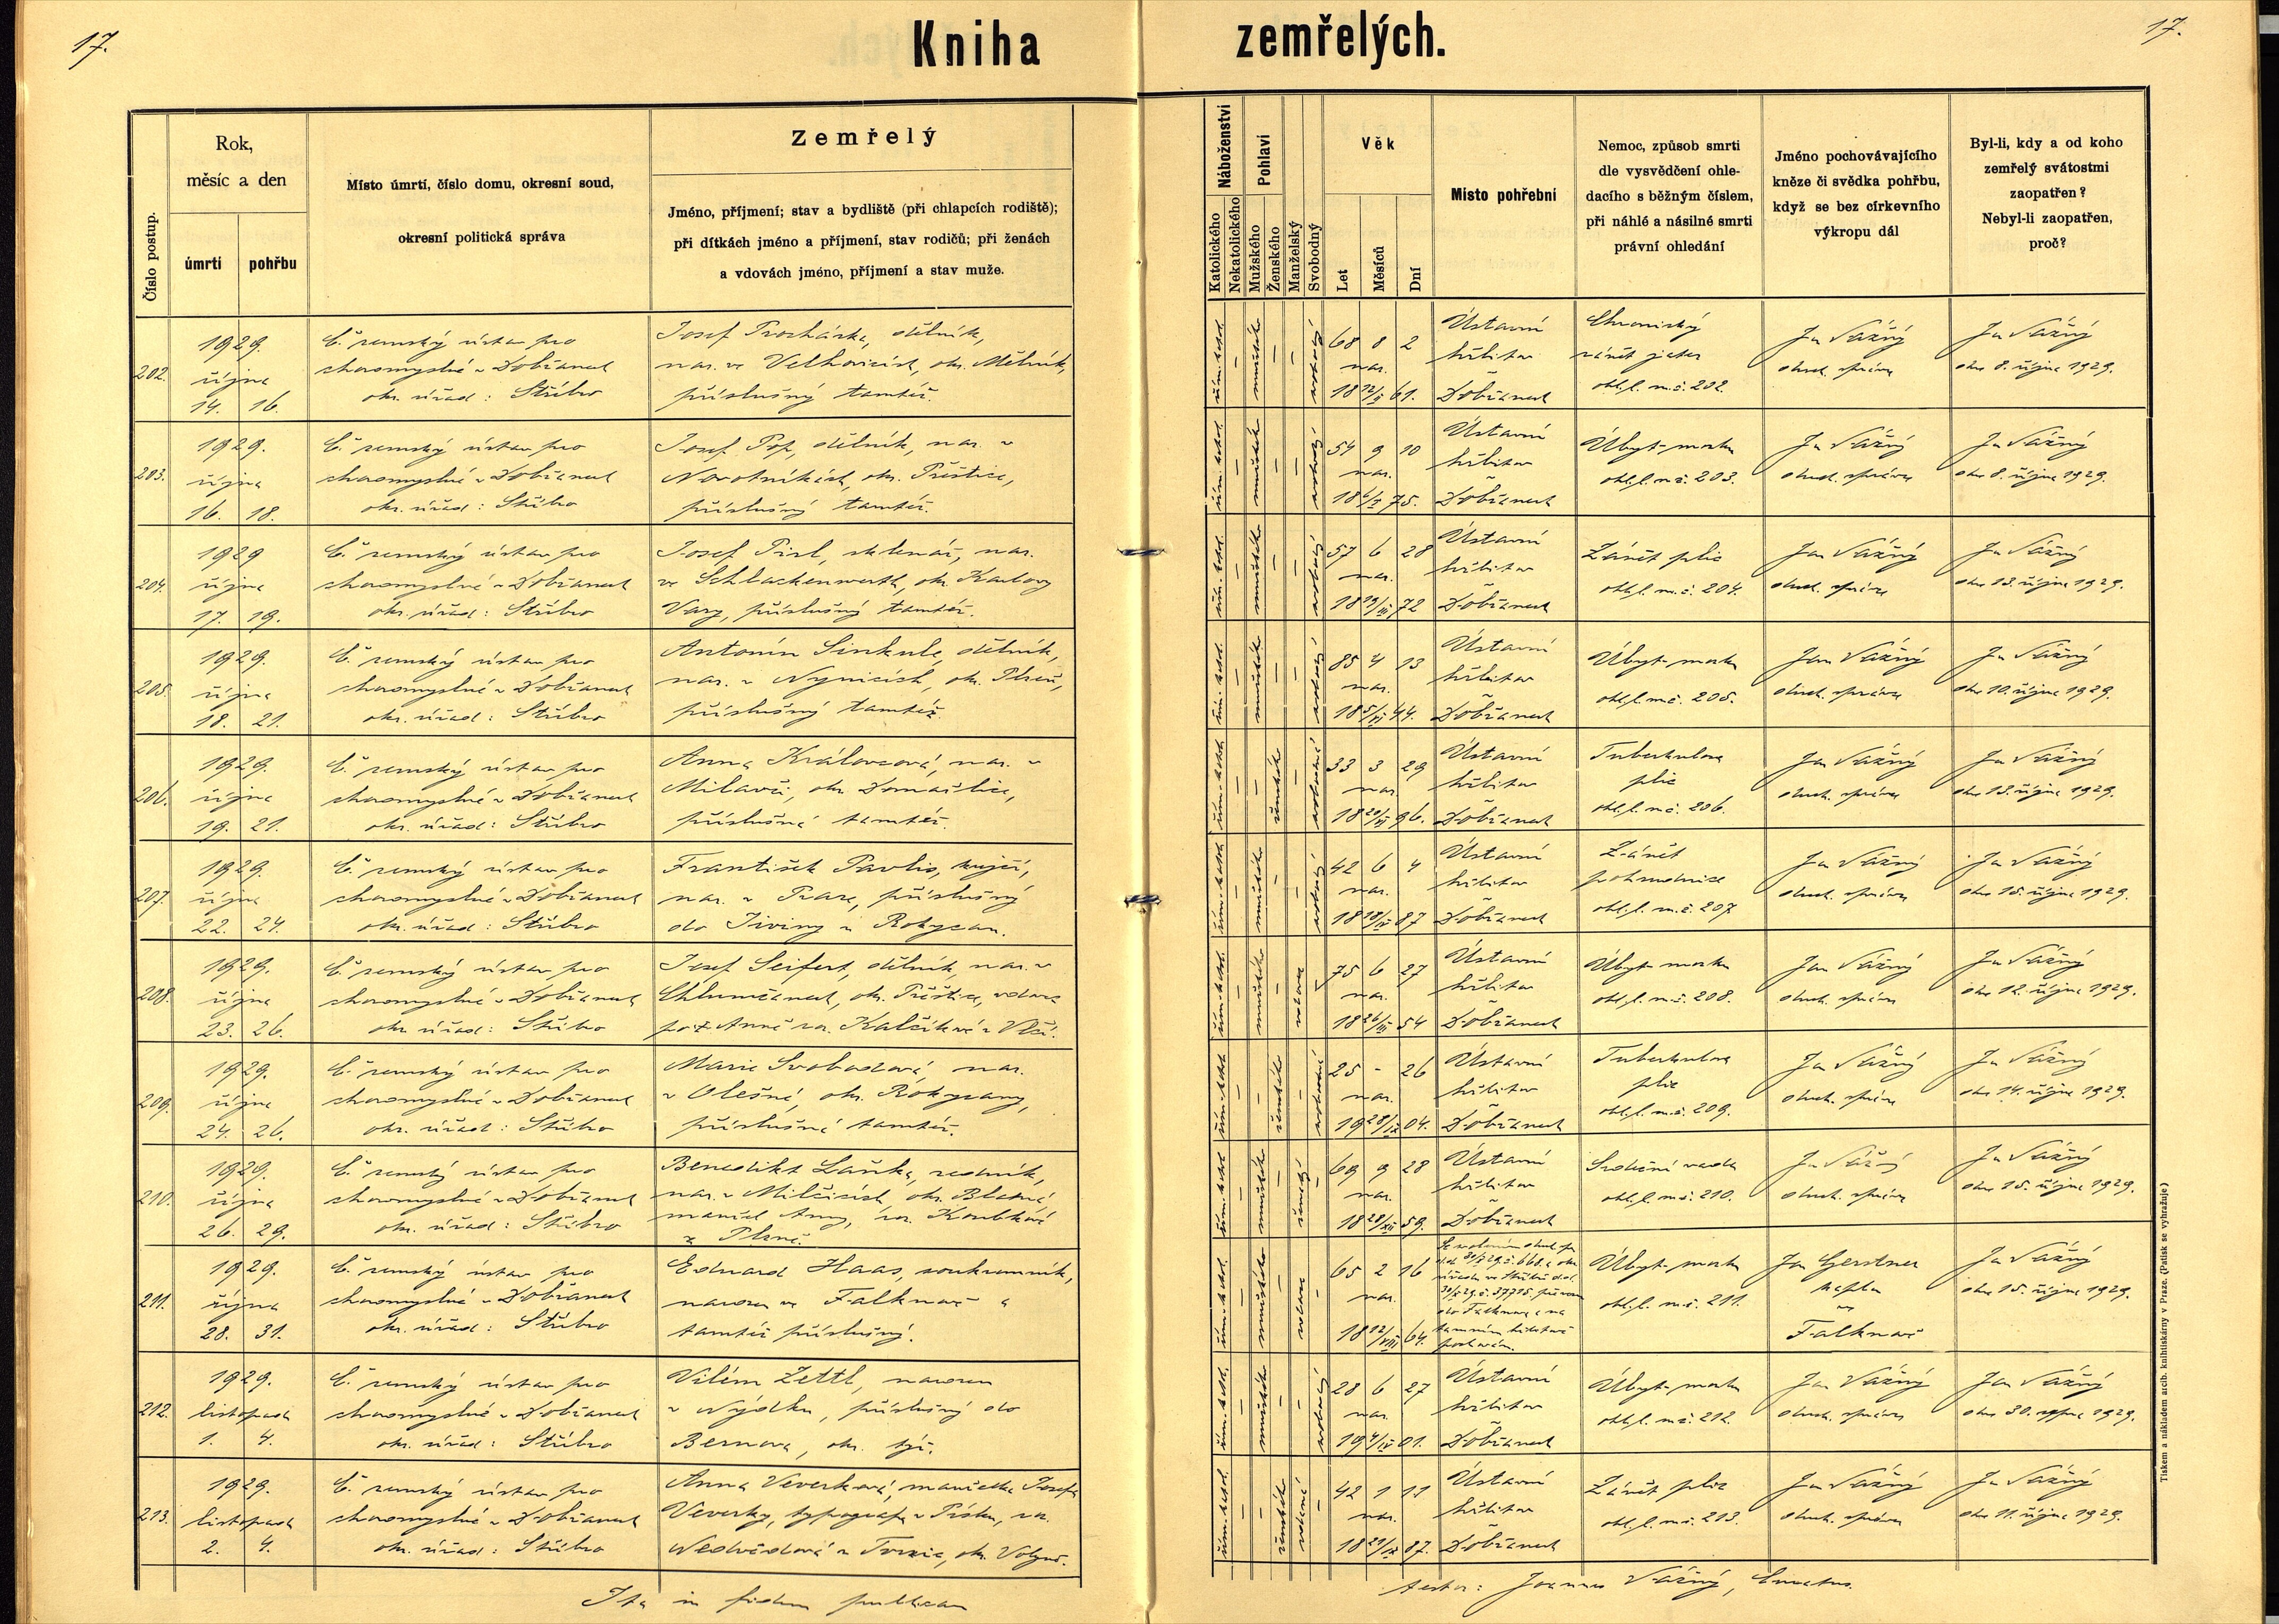 17.
Kniha zemřelých.
17.
Číslo postup.
Rok,
měsíc a den
úmrtí
pohřbu
Místo úmrtí, číslo domu, okresní soud,
okresní politická správa
Zemřelý
Jméno, příjmení; stav a bydliště (při chlapcích rodiště);
při dítkách jméno a příjmení, stav rodičů; při ženách
a vdovách jméno, příjmení a stav muže.
Náboženství
Katolického
Nekatolického
Pohlaví
Mužského
Ženského
Manželský
Svobodný
Věk
Let
Měsíců
Dní
Místo pohřební
Nemoc, způsob smrti
dle vysvědčení ohle-
dacího s běžným číslem,
při náhlé a násilné smrti
právní ohledání
Jméno pochovávajícího
kněze či svědka pohřbu,
když se bez církevního
výkropu dál
Byl-li, kdy a od koho
zemřelý svátostmi
zaopatřen?
Nebyl-li zaopatřen,
proč?
202.
1929.
října
14. 16.
Č. zemský ústav pro
choromyslné v Dobřanech
okr. úřad: Stříbro
Josef Procházka, dělník,
nar. ve okr. Mělník,
příslušný tamtéž.
řím. katol.
mužské
svobodný
68 8 2
nar.
18 12/II 61.
Ústavní
hřbitov
Dobřanech
Chronický
zánět jater
ohl. l. m. č. 202.
Jan Vážný
duch. správce
Jan Vážný
dne 8. října 1929.
203.
1929.
října
16. 18.
Č. zemský ústav pro
choromyslné v Dobřanech
okr. úřad: Stříbro
Josef Pop, dělník, nar. v
okr. Přeštice,
příslušný tamtéž.
řím. katol.
mužské
svobodný
54 9 10
nar.
18 6/I 75.
Ústavní
hřbitov
Dobřanech
Úbyt mozku
ohl. l. m. č. 203.
Jan Vážný
duch. správce
Jan Vážný
dne 8. října 1929.
204.
1929
října
17. 19.
Č. zemský ústav pro
choromyslné v Dobřanech
okr. úřad: Stříbro
Josef Pirl, sklenář, nar.
ve Schlackenwerth, okr. Karlovy
Vary, příslušný tamtéž.
řím. katol.
mužské
svobodný
57 6 28
nar.
18 19/III 72
Ústavní
hřbitov
Dobřanech
Zánět plic
ohl. l. m. č. 204.
Jan Vážný
duch. správce
Jan Vážný
dne 13. října 1929.
205.
1929.
října
18. 21.
Č. zemský ústav pro
choromyslné v Dobřanech
okr. úřad: Stříbro
Antonín Sinkule, dělník,
nar. v Nynicích, okr. Plzeň,
příslušný tamtéž.
řím. katol.
mužské
svobodný
85 4 13
nar.
18 5/VI 44.
Ústavní
hřbitov
Dobřanech
Úbyt mozku
ohl. l. m. č. 205.
Jan Vážný
duch. správce
Jan Vážný
dne 10. října 1929.
206.
1929.
října
19. 21.
Č. zemský ústav pro
choromyslné v Dobřanech
okr. úřad: Stříbro
Anna Královcová, nar. v
Milavči, okr. Domažlice,
příslušná tamtéž.
řím. katol.
ženské
svobodná
33 3 29
nar.
18 20/VI 96.
Ústavní
hřbitov
Dobřanech
Tuberkulosa
plic
ohl. l. m. č. 206.
Jan Vážný
duch. správce
Jan Vážný
dne 13. října 1929.
207.
1929.
října
22. 24.
Č. zemský ústav pro
choromyslné v Dobřanech
okr. úřad: Stříbro
František Pavlis, krejčí,
nar. v Praze, příslušný
do Jiviny u Rokycan.
řím. katol.
mužské
svobodný
42 6 4
nar.
18 18/IV 87
Ústavní
hřbitov
Dobřanech
Zánět
pohrudnice
ohl. l. m. č. 207
Jan Vážný
duch. správce
Jan Vážný
dne 15. října 1929.
208.
1929.
října
23. 26.
Č. zemský ústav pro
choromyslné v Dobřanech
okr. úřad: Stříbro
Josef Seifert, dělník, nar. v
Chlumčanech, okr. Přeštice, vdovec
po † Anně roz. Kalčíkové
řím. katol.
mužské
vdovec
75 6 27
nar.
18 26/III 54
Ústavní
hřbitov
Dobřanech
Úbyt mozku
ohl. l. m. č. 208.
Jan Vážný
duch. správce
Jan Vážný
dne 12. října 1929.
209.
1929.
října
24. 26.
Č. zemský ústav pro
choromyslné v Dobřanech
okr. úřad: Stříbro
Marie Svobodová, nar.
v Olešné, okr. Rokycany,
příslušná tamtéž.
řím. katol.
ženské
svobodná
25 - 26
nar.
19 28/IX 04.
Ústavní
hřbitov
Dobřanech
Tuberkulosa
plic
ohl. l. m. č. 209.
Jan Vážný
duch. správce
Jan Vážný
dne 14. října 1929.
210.
1929.
října
26. 29.
Č. zemský ústav pro
choromyslné v Dobřanech
okr. úřad: Stříbro
Benedikt Laňka, rolník,
nar. v Milčicích, okr. Blatná
manžel Anny, roz. Koubkové
z Plzně.
řím. katol.
mužské
ženatý
69 9 28
nar.
18 28/XII 59.
Ústavní
hřbitov
Dobřanech
Srdeční vada
ohl. l. m. č. 210.
Jan Vážný
duch. správce
Jan Vážný
dne 15. října 1929.
211.
1929.
října
28. 31.
Č. zemský ústav pro
choromyslné v Dobřanech
okr. úřad: Stříbro
Eduard Haas, soukromník,
narozen ve Falknově a
tamtéž příslušný.
řím. katol.
mužské
vdovec
65 2 16
nar.
18 12/VIII 64.
do Falknova a na
tamním hřbitově
pochován.
Úbyt mozku
ohl. l. m. č. 211.
Jan Gerstner
kaplan
ve
Falknově
Jan Vážný
dne 15. října 1929.
212.
1929.
listopada
1. 4.
Č. zemský ústav pro
choromyslné v Dobřanech
okr. úřad: Stříbro
Vilém Zettl, narozen
v Nýdku, příslušný do
Bernova, okr. týž.
řím. katol.
mužské
svobodný
28 6 27
nar.
19 4/IV 01.
Ústavní
hřbitov
Dobřanech
Úbyt mozku
ohl. l. m. č. 212.
Jan Vážný
duch. správce
Jan Vážný
dne 30. srpna 1929.
213.
1929.
listopada
2. 4.
Č. zemský ústav pro
choromyslné v Dobřanech
okr. úřad: Stříbro
Anna Veverková, manželka Josefa
Veverky, typografa v Písku, roz.
Nedvědová okr. Volyně.
řím. katol.
ženské
vdaná
42 1 11
nar.
18 21/IX 87.
Ústavní
hřbitov
Dobřanech
Zánět plic
ohl. l. m. č. 213.
Jan Vážný
duch. správce
Jan Vážný
dne 11. října 1929.
Ita in fidem publicam
testor: Joannes Vážný, Curatus.
Tiskem a nákladem arcib. knihtiskárny v Praze. (Patisk se vyhražuje)